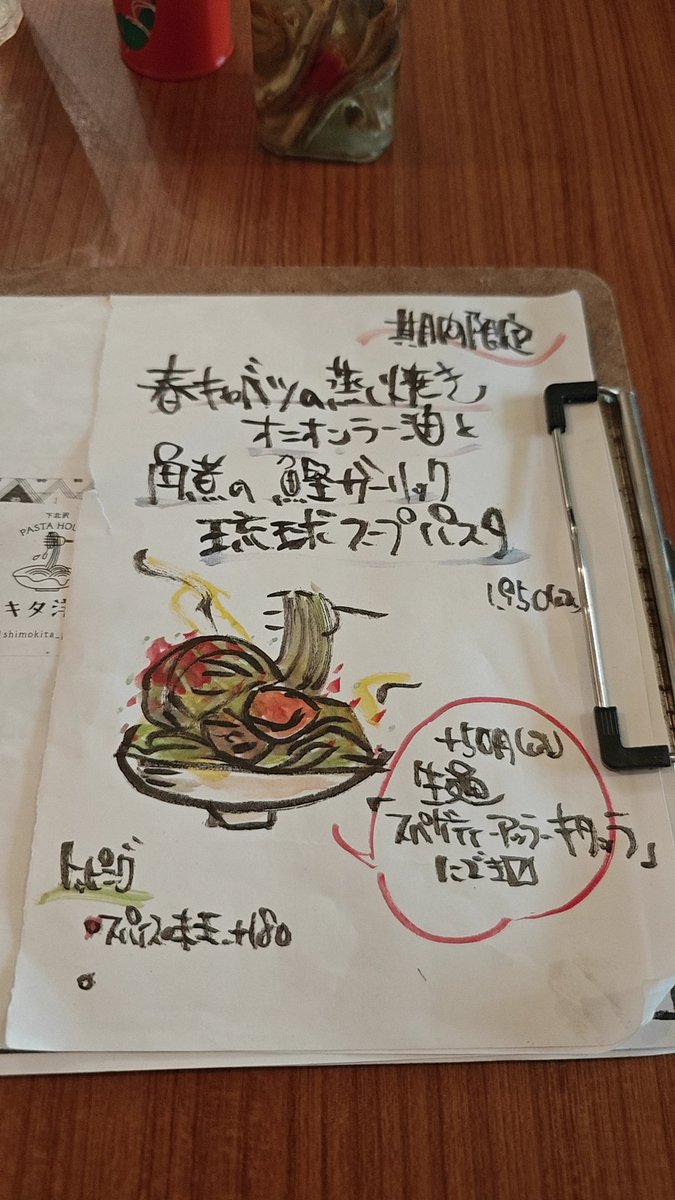 期間限定
春キャベツの蒸し焼き
オニオンラー油と
角煮の鰹ガーリック
琉球スープパスタ
1,950(税込)
+50円(税込)
生麺
「スパゲティーアッラーキタッラ」
にできます
トッピング
・スパイス味玉 +180
下北沢
PASTA HOU
キタ洋
shimokita_